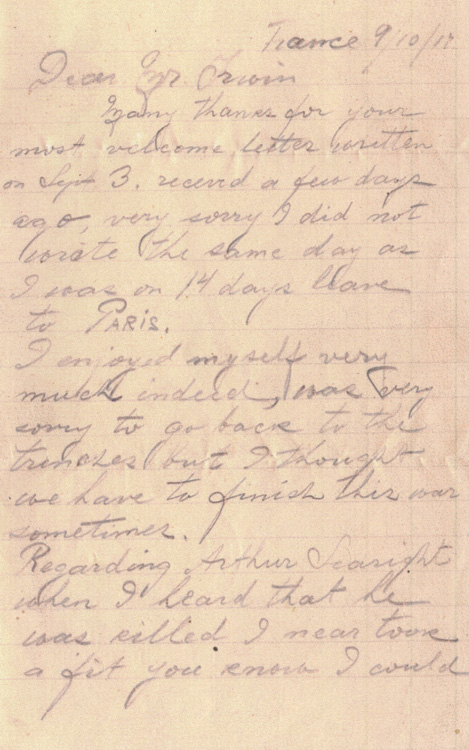 France 9/10/17
Dear Mr. Irwin
Many thanks for your
most velcome letter written
on Sept 3. receved a few days
ago, very sorry I did not
wrote the same day as
I was on 14 days leave
to PARIS.
I enjoyed myself very
much indeed, was very
sorry to go back to the
trenches but I thought
we have to finish this war
sometimes.
Regarding Arthur Searight
when I heard that he
was killed I near took
a fit you know I could